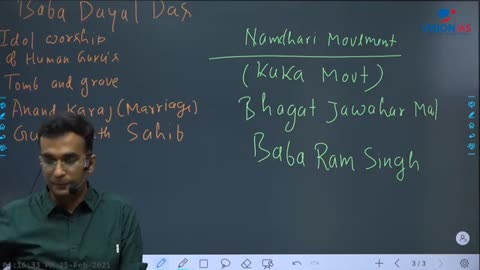 Baba Dayal Das
Idol worship
of Human Guru's
Tomb and grave
Anand Karaj (Marriage)
Sahib
Namdhari Movement
(Kuka Movt)
Bhagat Jawahar Mal
Baba Ram Singh
VISION IAS
3/3